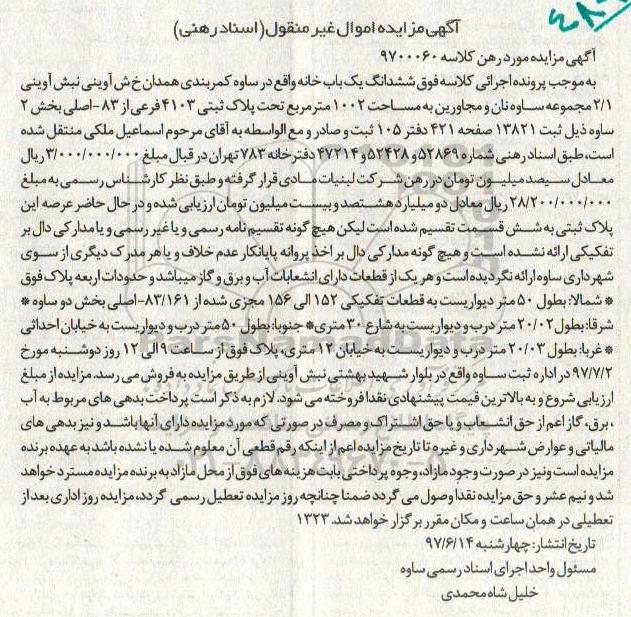 آگهی مزایده اموال غیر منقول(اسناد رهنی)
آگهی مزایده مورد رهن کلاسه ۹۷۰۰۰۶۰
به موجب پرونده اجرائی کلاسه فوق ششدانگ یک باب خانه واقع در ساوه کمربندی همدان خ ش آوینی نبش آوینی
۲/۱ مجموعه ساوه نان و مجاورین به مساحت ۱۰۰۲ متر مربع تحت پلاک ثبتی ۴۱۰۳ فرعی از ۸۳ -اصلی بخش ۲
ساوه ذیل ثبت ۱۳۸۲۱ صفحه ۴۲۱ دفتر ۱۰۵ ثبت و صادر و مع الواسطه به آقای مرحوم اسماعیل ملکی منتقل شده
است، طبق اسناد رهنی شماره ۵۲۸۶۹ و ۵۲۴۲۸ و ۴۷۲۱۴ دفترخانه ۷۸۳ تهران در قبال مبلغ ۳/۰۰۰/۰۰۰/۰۰۰ ریال
معادل سیصد میلیون تومان در رهن شرکت لبنیات شادی قرار گرفته و طبق نظر کارشناس رسمی به مبلغ
۲۸/۲۰۰/۰۰۰/۰۰۰ ریال معادل دو میلیارد هشتصد و بیست میلیون تومان ارزیابی شده و در حال حاضر عرصه این
پلاک ثبتی به شش قسمت تقسیم شده است لیکن هیچ گونه تقسیم نامه رسمی و یا غیر رسمی و یا مدارکی دال بر
تفکیکی ارائه نشده است و هیچ گونه مدارکی دال بر اخذ پروانه پایانکار عدم خلاف و یا هر مدرک دیگری از سوی
شهرداری ساوه ارائه نگردیده است و هر یک از قطعات دارای انشعابات آب و برق و گاز میباشد و حدودات اربعه پلاک فوق
* شمالا: بطول ۵۰ متر دیواریست به قطعات تفکیکی ۱۵۲ الی ۱۵۶ مجزی شده از ۸۳/۱۶۱- اصلی بخش دو ساوه *
شرقا: بطول ۲۰/۰۲ متر درب و دیواریست به شارع ۳۰ متری* جنوبا: بطول ۵۰ متر درب و دیواریست به خیابان احداثی
* غربا: بطول ۲۰/۰۳ متر درب و دیواریست به خیابان ۱۲ متری، پلاک فوق از ساعت ۹ الی ۱۲ روز دوشنبه مورخ
۹۷/۷/۲ در اداره ثبت ساوه واقع در بلوار شهید بهشتی نبش آوینی از طریق مزایده به فروش می رسد. مزایده از مبلغ
ارزیابی شروع و به بالاترین قیمت پیشنهادی نقدا فروخته می شود. لازم به ذکر است پرداخت بدهی های مربوط به آب
، برق، گاز اعم از حق انشعاب و یا حق اشتراک و مصرف در صورتی که مورد مزایده دارای آنها باشد و نیز بدهی های
مالیاتی و عوارض شهرداری و غیره تا تاریخ مزایده اعم از اینکه رقم قطعی آن معلوم شده یا نشده باشد به عهده برنده
مزایده است ونیز در صورت وجود مازاد، وجوه پرداختی بابت هزینه های فوق از محل مازاد به برنده مزایده مسترد خواهد
شد و نیم عشر و حق مزایده نقدا وصول می گردد ضمنا چنانچه روز مزایده تعطیل رسمی گردد، مزایده روز اداری بعد از
تعطیلی در همان ساعت و مکان مقرر برگزار خواهد شد. ۱۳۲۳
تاریخ انتشار: چهارشنبه ۹۷/۶/۱۴
مسئول واحد اجرای اسناد رسمی ساوه
خلیل شاه محمدی